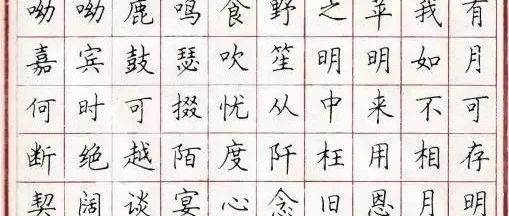 呦呦鹿鸣食野之苹我有
嘉宾鼓瑟吹笙明明如月
何时可掇忧从中来不可
断绝越陌度阡枉用相存
契阔谈宴心念旧恩月明